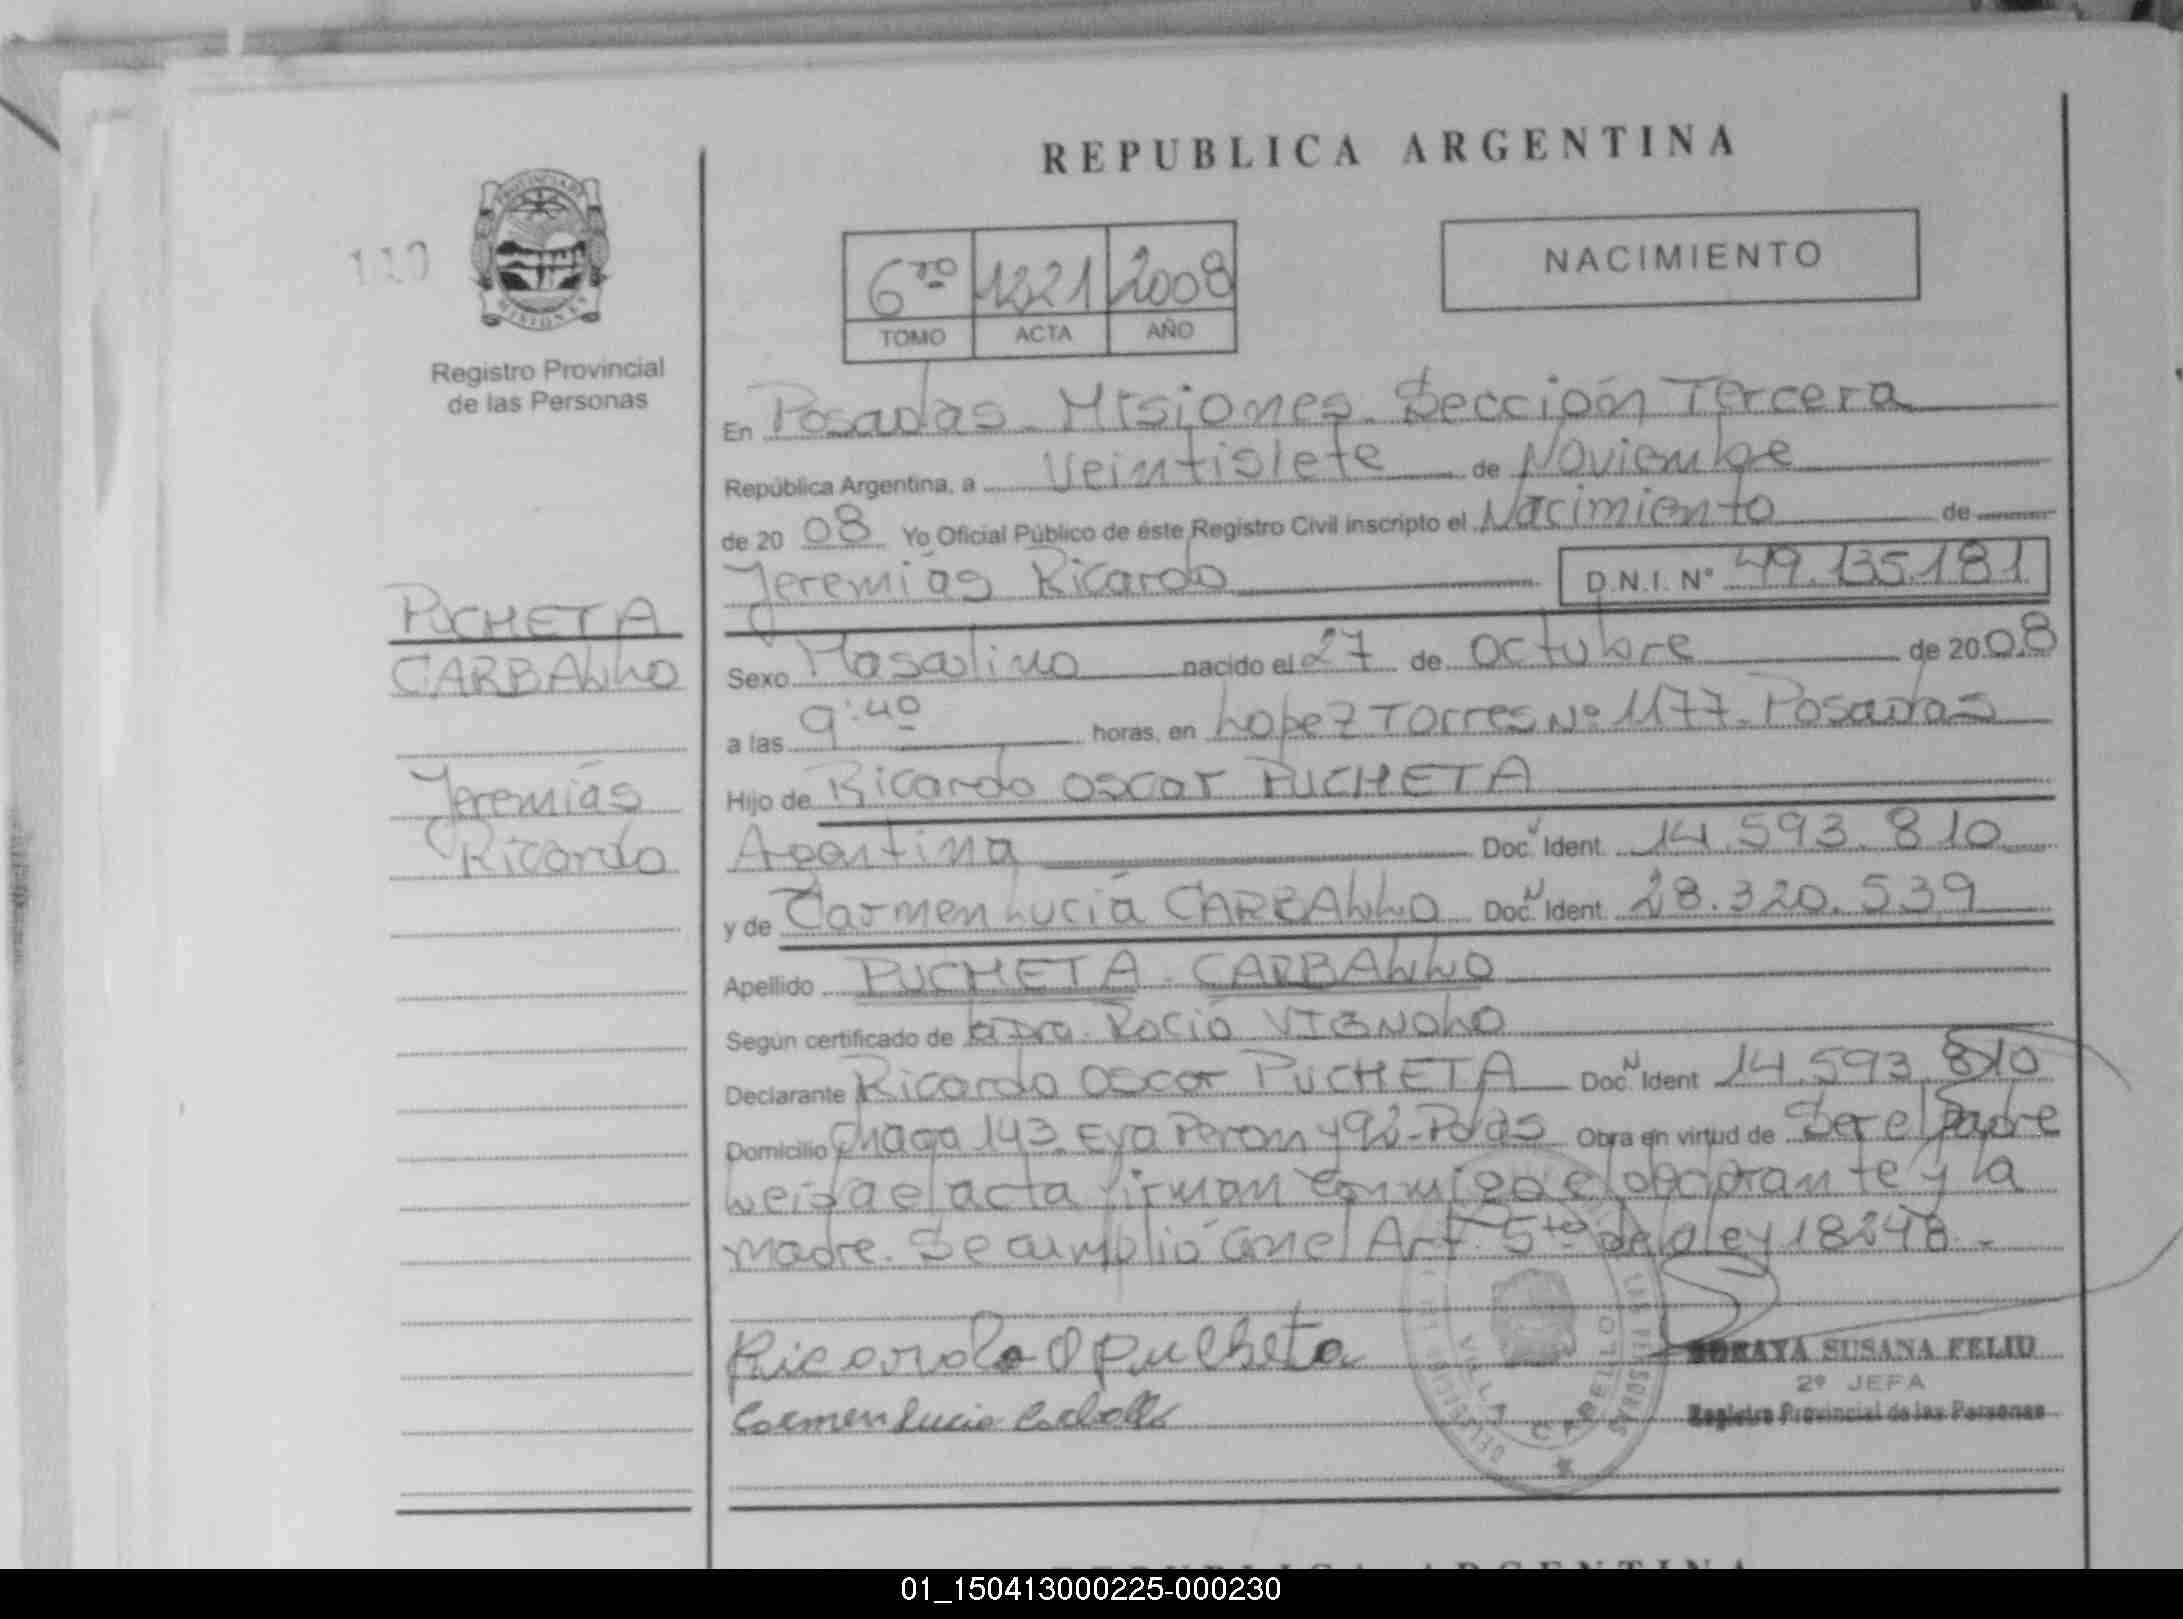 REPUBLICA ARGENTINA
110
PROVINCIA DE
MISIONES
Registro Provincial
de las Personas
6ro 1221 2008
TOMO ACTA AÑO
NACIMIENTO
En Posadas - Misiones. Sección Tercera
República Argentina, a Veintisiete de Noviembre
de 20 08 Yo Oficial Público de éste Registro Civil inscripto el Nacimiento de
Jeremías Ricardo D.N.I. Nº 49.135.181
PUCHETA
CARBALLO
Jeremías
Ricardo
Sexo Masculino nacido el 27 de octubre de 20 08
a las 9:40 horas, en Lopez Torres Nº 1177 - Posadas
Hijo de Ricardo Oscar PUCHETA
Argentina Doc. Ident. 14.593.810
y de Carmen Lucia CARBALLO Doc. Ident. 28.320.539
Apellido PUCHETA - CARBALLO
Según certificado de la Dra. Rocío VIGNOLO
Declarante Ricardo Oscar PUCHETA Doc. Ident 14.593.810
Domicilio Chaca 143. Eva Peron y 92 - Pdas Obra en virtud de Ser el Padre
Leida el acta firman conmigo el declarante y la
madre. Se cumplió con el Art. 5to de la ley 18248.-
Ricardo O Pucheta
Carmen Lucia Carballo
VILLA CABELLO
SORAYA SUSANA FELIU
2º JEFA
Registro Provincial de las Personas
REPUBLICA ARGENTINA
01_150413000225-000230